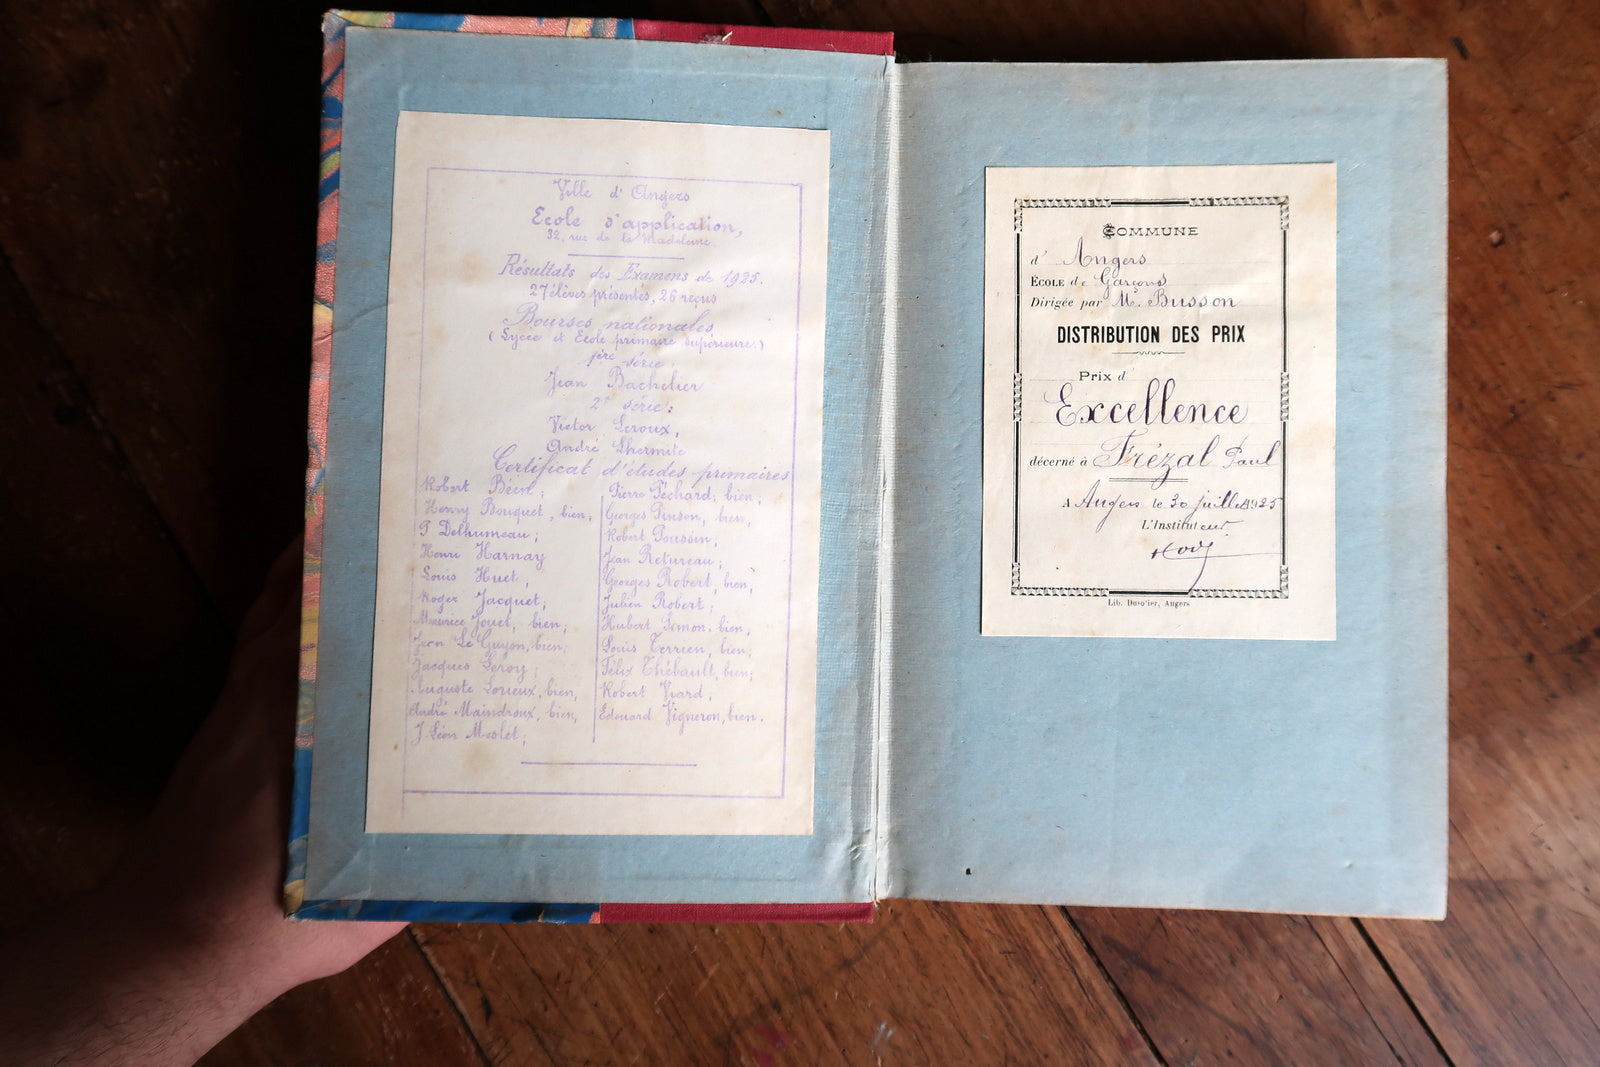 Ville d'Angers
Ecole d'application,
32, rue de la Madeleine.
Résultats des Examens de 1925.
27 élèves présentés, 26 reçus
Bourses nationales
(Lycée et Ecole primaire supérieure.)
1ère série
Jean Bachelier
2e série :
Victor Leroux,
André Lhermite
Certificat d'études primaires
Robert Béen ;
Henry Bouquet, bien ;
P Delhumeau ;
Henri Harnay
Louis Huet ,
Roger Jacquet ;
Maurice Jouet, bien ;
Jean Le Guyon, bien ;
Jacques Leroy ;
Auguste Lorieux, bien,
André Maindroux, bien,
J. Léon Meslet ;
Pierre Péchard, bien ;
Georges Pinson, bien,
Robert Poussin ;
Jean Retureau ;
Georges Robert, bien,
Julien Robert ;
Hubert Simon, bien,
Louis Terrien, bien,
Félix Thébault, bien ;
Robert Viard ;
Edouard Vigneron, bien.
COMMUNE
d' Angers
ÉCOLE de Garçons
Dirigée par Mr. Busson
DISTRIBUTION DES PRIX
Prix d'
Excellence
décerné à Frézal Paul
A Angers le 30 juillet 1925
L'Instituteur
Lib. Dusolier, Angers